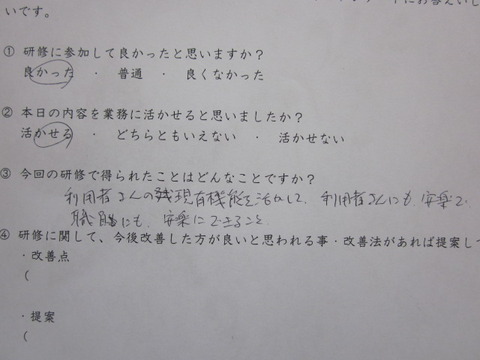 いです。
① 研修に参加して良かったと思いますか？
良かった ・ 普通 ・ 良くなかった
② 本日の内容を業務に活かせると思いましたか？
活かせる ・ どちらともいえない ・ 活かせない
③ 今回の研修で得られたことはどんなことですか？
利用者さんの現有機能を活かして、利用者さんにも、安楽で
職員にも、安楽にできること
④ 研修に関して、今後改善した方が良いと思われる事・改善法があれば提案し
・改善点
(
・提案
(